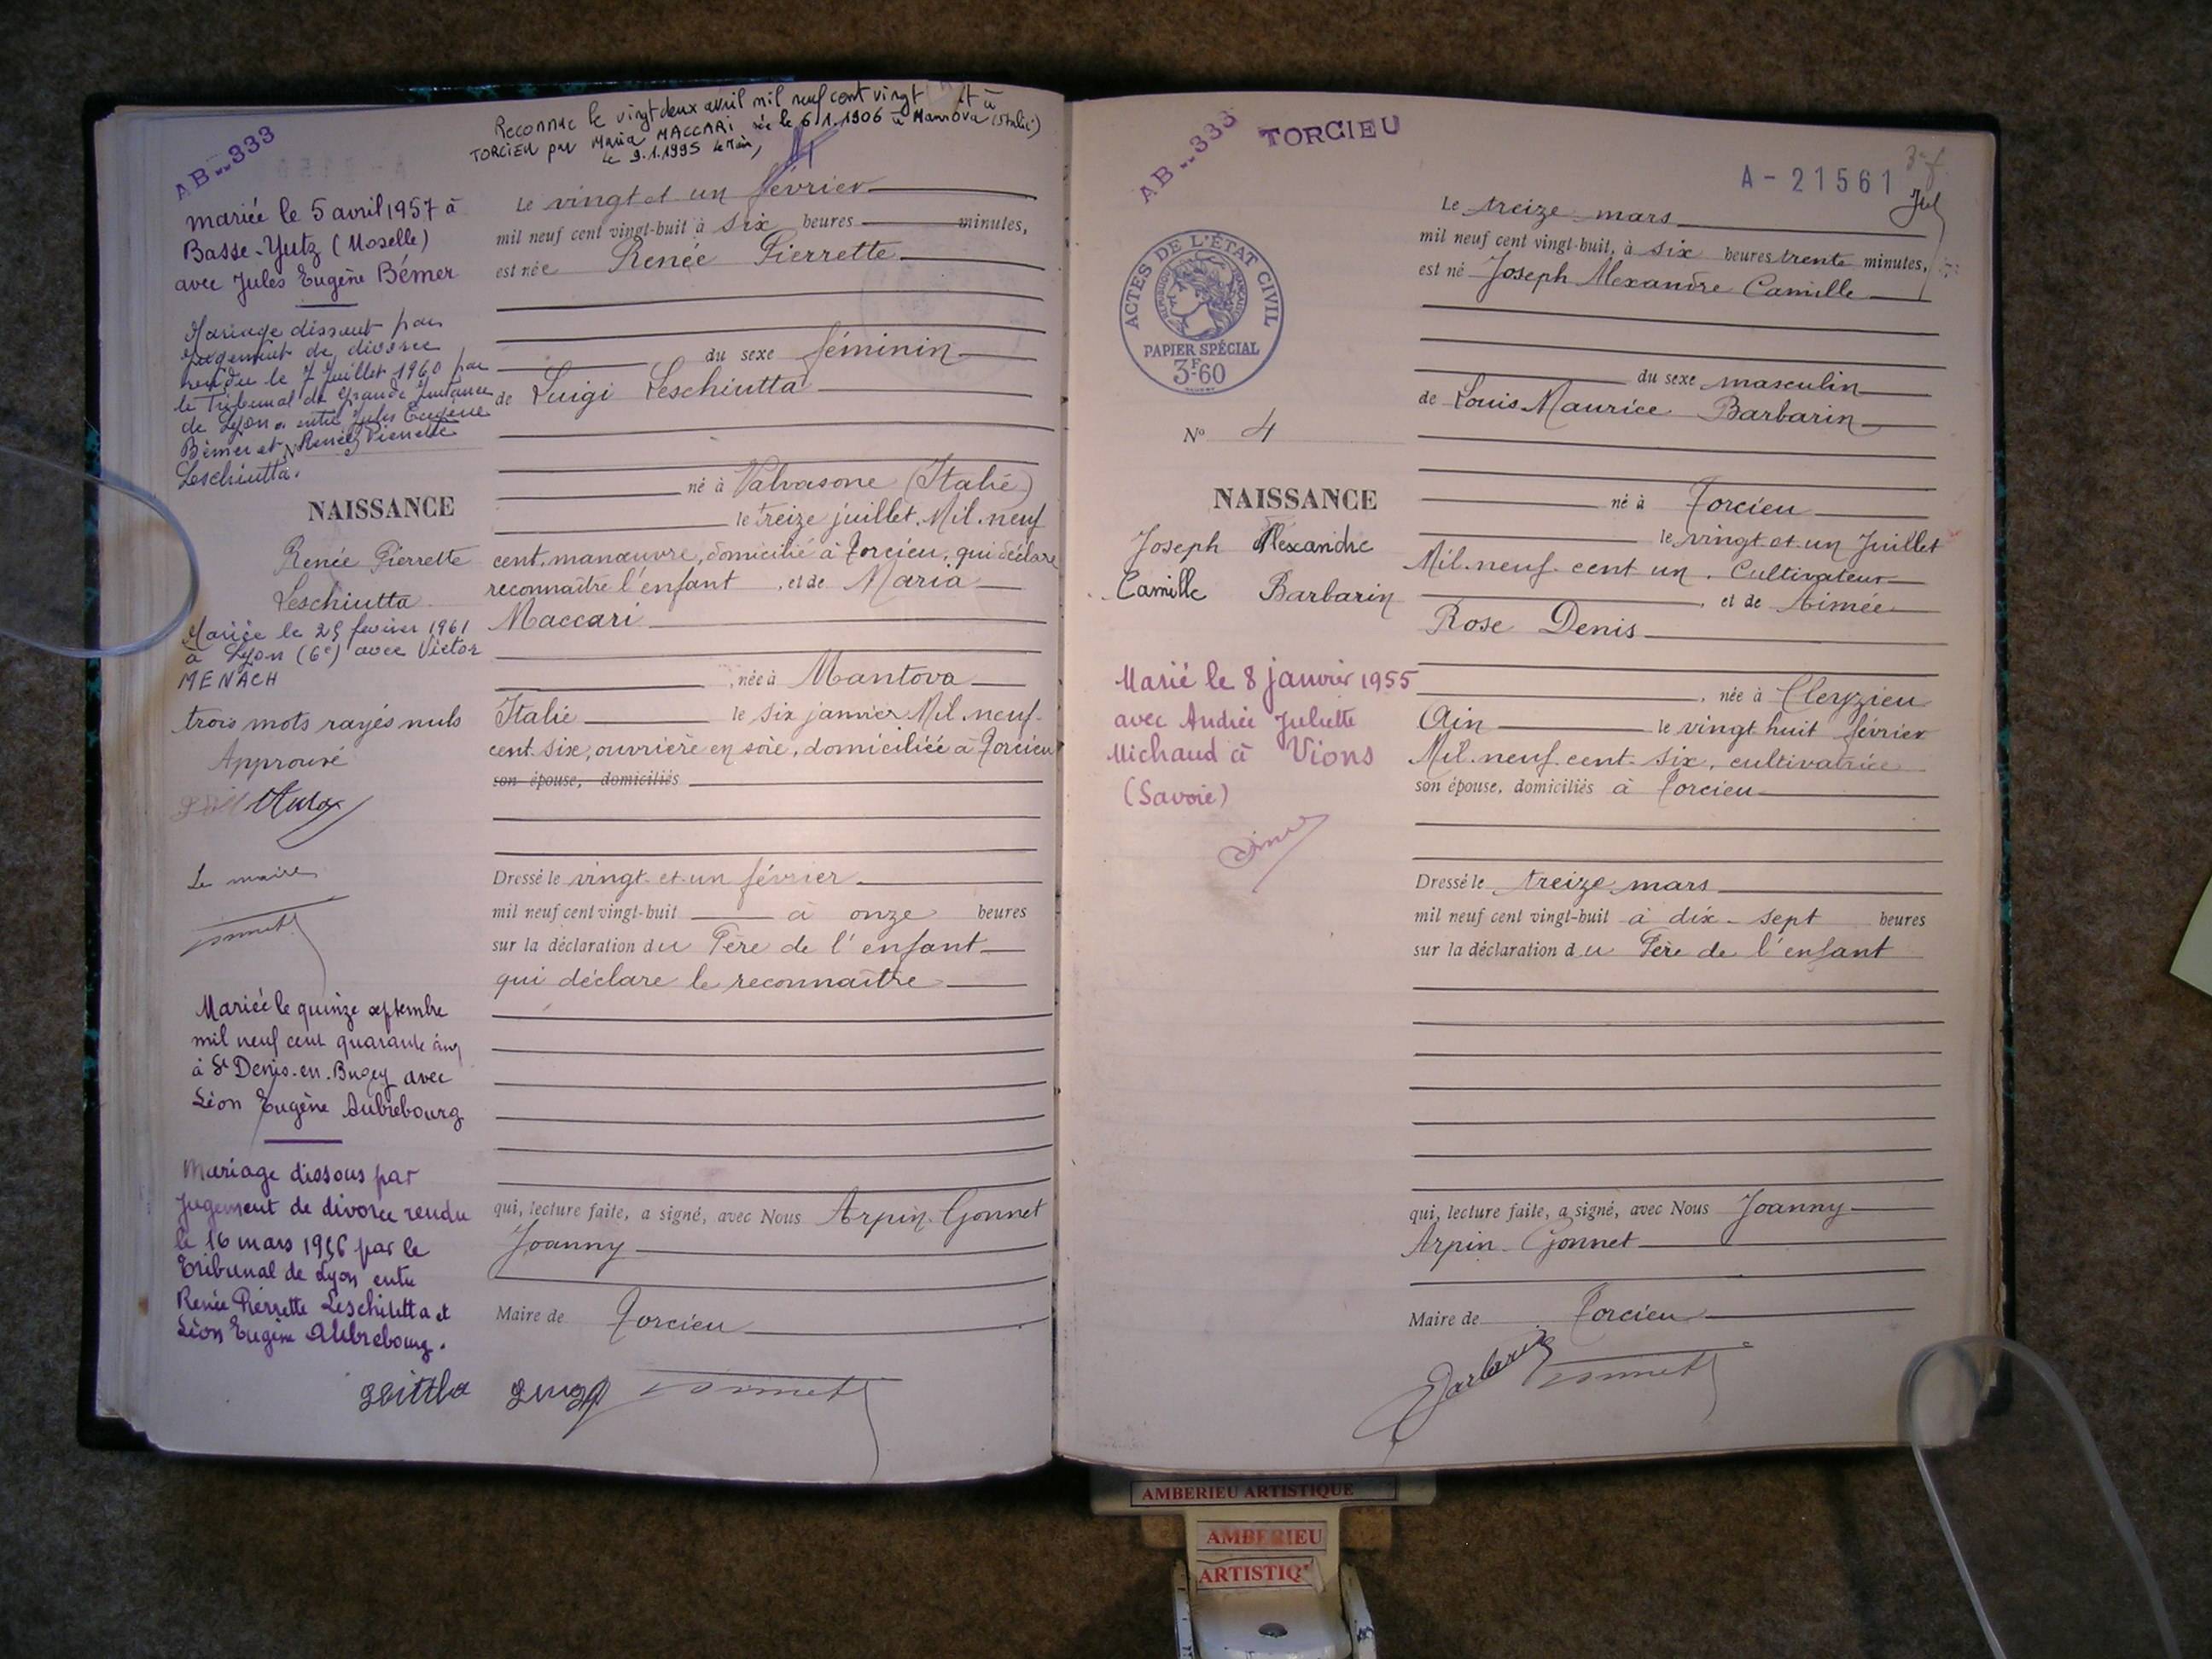 AB--333
Reconnue le vingt deux avril mil neuf cent vingt
TORCIEU par Maria MACCARI née le 6.1.1906 à Mantova (Italie)
le 9.1.1995 le Maire,
mariée le 5 avril 1957 à
Basse-Yutz (Moselle)
avec Jules Eugène Bémer
Mariage dissout par
jugement de divorce
rendu le 7 Juillet 1960 par
le Tribunal de Grande Instance
de Lyon entre Jules Eugène
Bémer et Renée Pierrette
Leschiutta.
NAISSANCE
Renée Pierrette
Leschiutta
Mariée le 25 février 1961
à Lyon (6e) avec Victor
MENACH
trois mots rayés nuls
Approuvé
Le maire
Mariée le quinze septembre
mil neuf cent quarante cinq
à St Denis-en-Bugey avec
Léon Eugène Aubrebourg
Mariage dissous par
jugement de divorce rendu
le 16 mars par le
Tribunal de Lyon entre
Renée Pierrette Leschiutta et
Léon Eugène Aubrebourg.
Le vingt et un février
mil neuf cent vingt-huit à six heures minutes,
est née Renée Pierrette
du sexe féminin
de Luigi Leschiutta
né à Valvasone (Italie)
le treize juillet Mil-neuf
cent, manœuvre, domicilié à Torcieu, qui déclare
reconnaître l'enfant, et de Maria
Maccari
, née à Mantova
Italie le six janvier Mil-neuf-
cent-six, ouvrière en soie, domiciliée à Torcieu
son épouse, domiciliés
Dressé le vingt-et-un février
mil neuf cent vingt-huit à onze heures
sur la déclaration du Père de l'enfant
qui déclare le reconnaître
qui, lecture faite, a signé, avec Nous Arpin-Gonnet
Joanny
Maire de Torcieu
AB--333
TORCIEU
A-21561
ACTES DE L'ÉTAT CIVIL
RÉPUBLIQUE FRANÇAISE
PAPIER SPÉCIAL
3F.60
N° 4
NAISSANCE
Joseph Alexandre
Camille Barbarin
Marié le 8 janvier 1955
avec Andrée Juliette
Michaud à Vions
(Savoie)
Le treize mars
mil neuf cent vingt-huit, à six heures trente minutes,
est né Joseph Alexandre Camille
du sexe masculin
de Louis Maurice Barbarin
né à Torcieu
le vingt et un Juillet
Mil-neuf-cent un, Cultivateur
, et de Aimée
Rose Denis
, née à Cleyzieu
Ain le vingt huit février
Mil-neuf-cent-six, cultivatrice
son épouse, domiciliés à Torcieu
Dressé le treize mars
mil neuf cent vingt-huit à dix-sept heures
sur la déclaration du Père de l'enfant
qui, lecture faite, a signé, avec Nous Joanny
Arpin-Gonnet
Maire de Torcieu
Barbarin
AMBERIEU ARTISTIQUE
AMBERIEU
ARTISTIQ